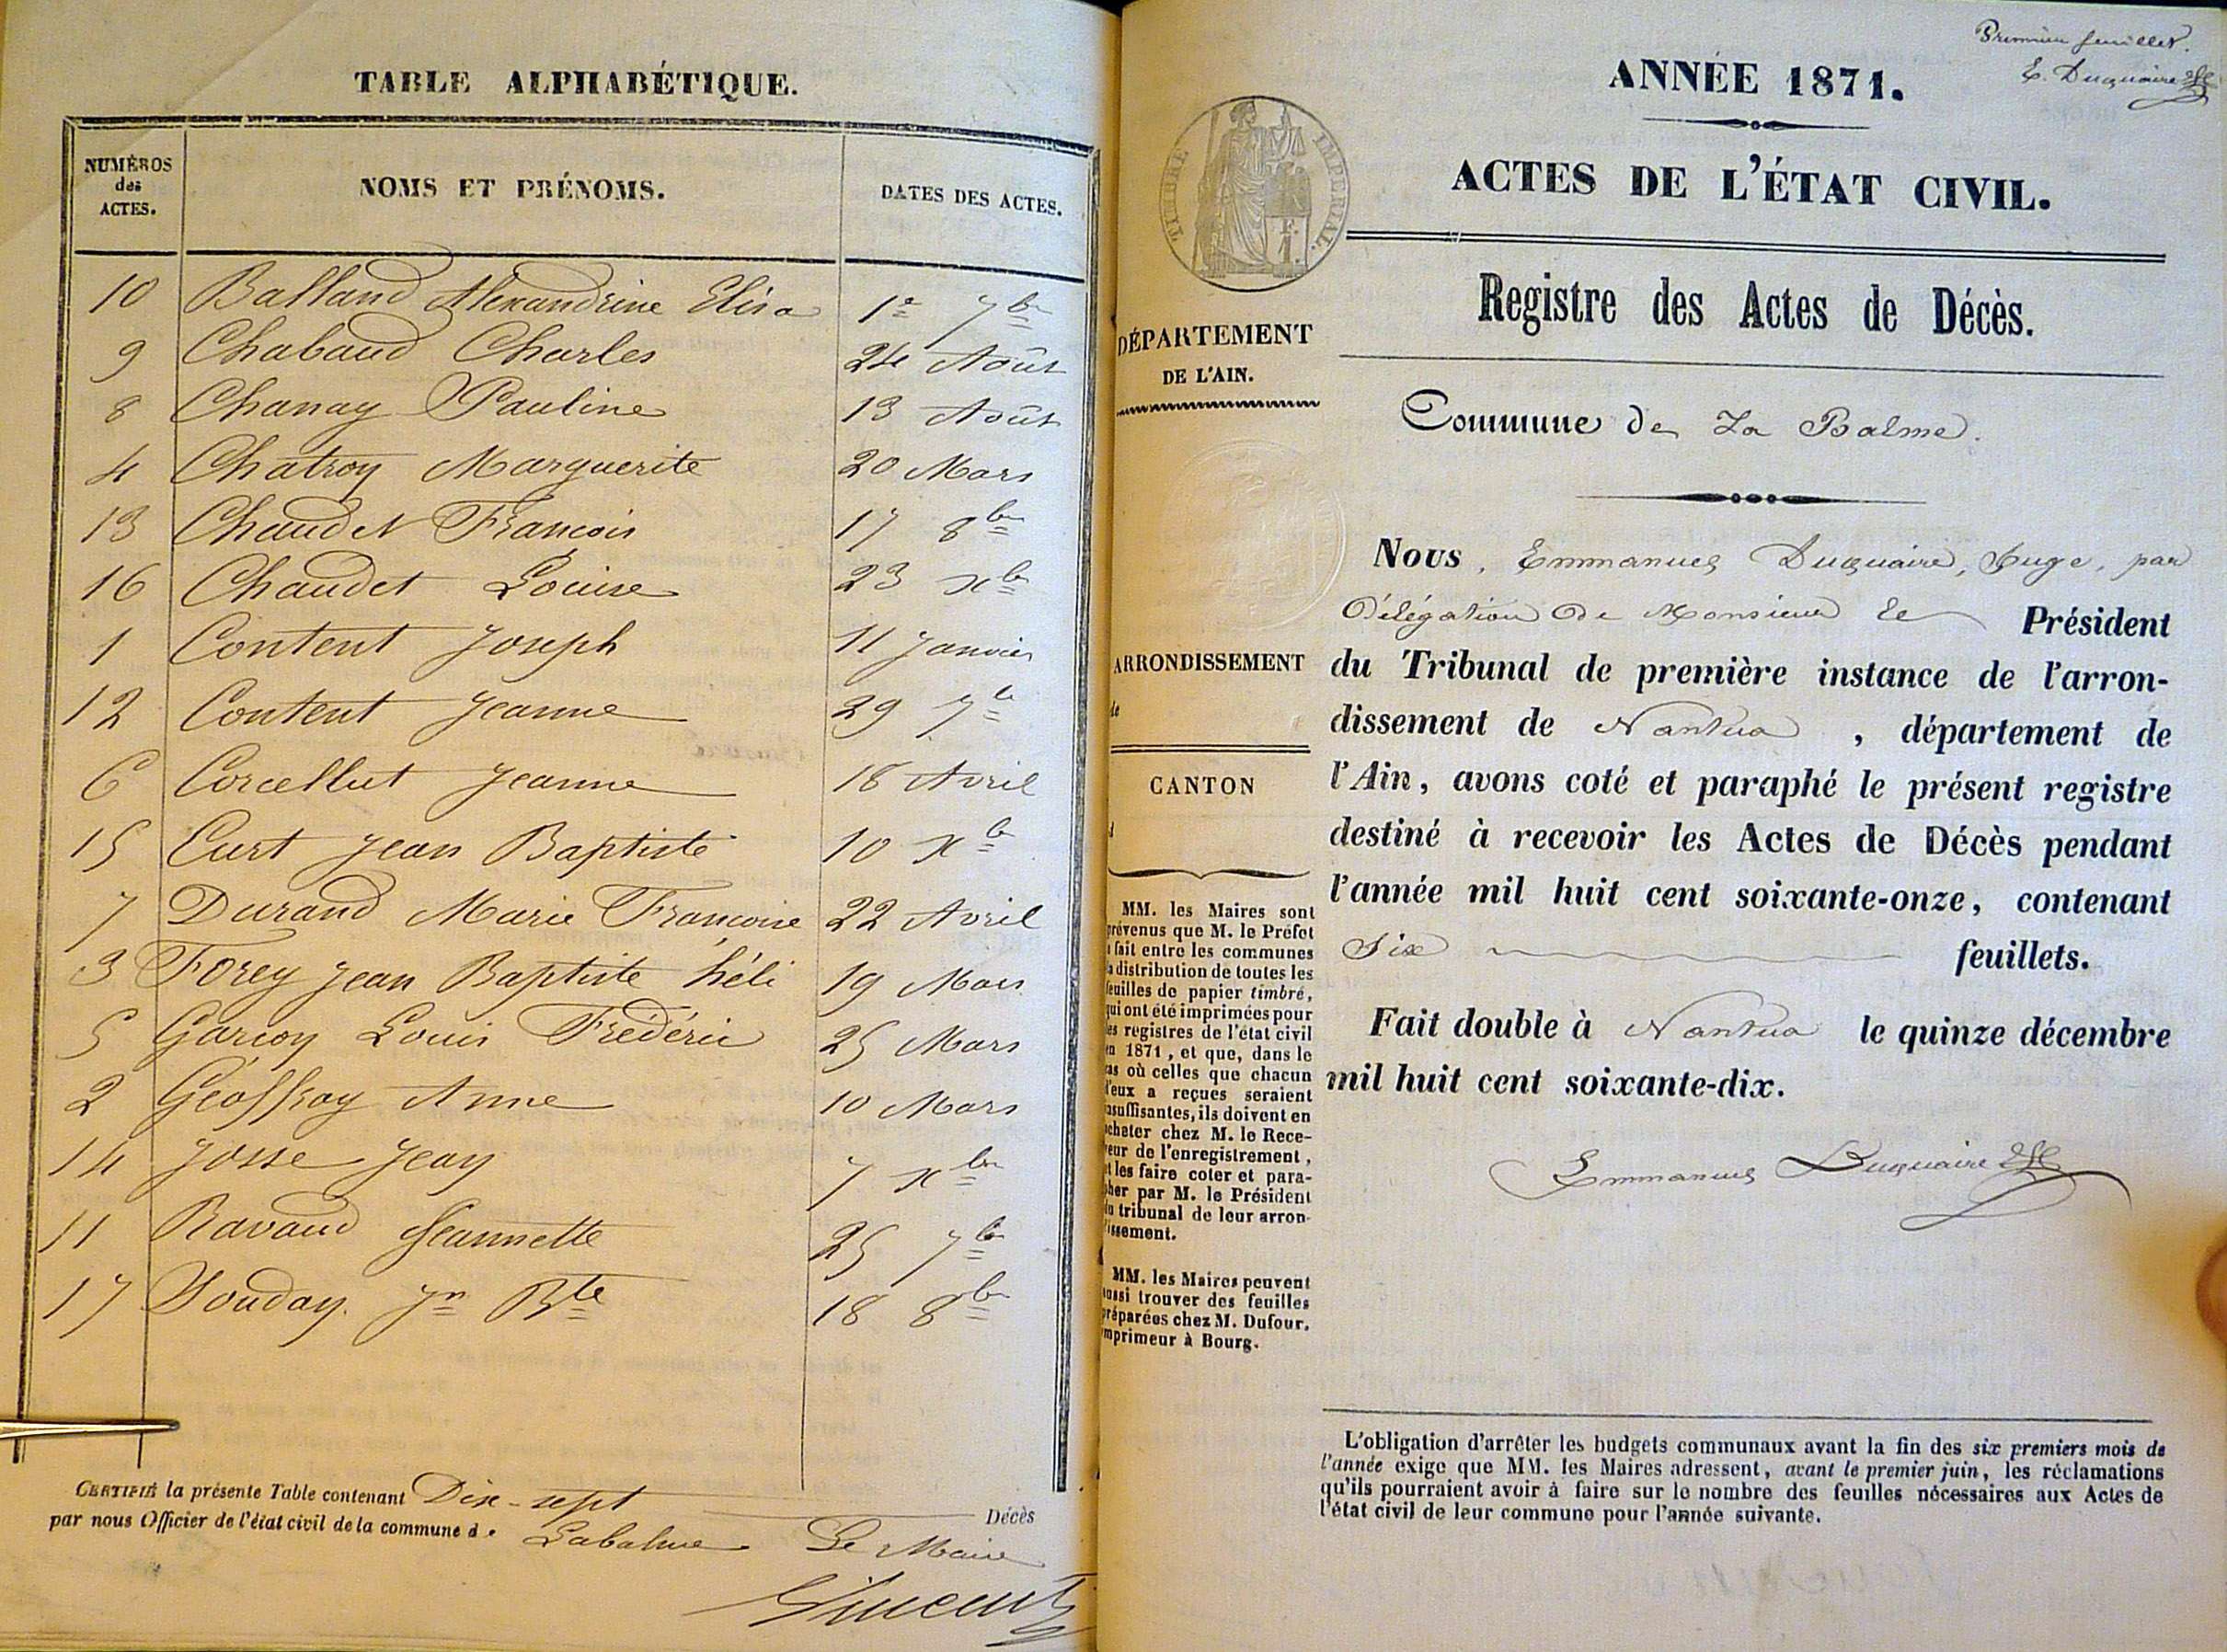 TABLE ALPHABÉTIQUE.
NUMÉROS des ACTES. NOMS ET PRÉNOMS. DATES DES ACTES.
10 Balland Alexandrine Elisa 1er 7bre
9 Chabaud Charles 24 Août
8 Chanay Pauline 13 Août
4 Chatroy Marguerite 20 Mars
13 Chaudet François 17 8bre
16 Chaudet Louise 23 xbre
1 Content Joseph 11 Janvier
12 Content Jeanne 29 7bre
6 Corcellut Jeanne 18 Avril
15 Curt Jean Baptiste 10 xbre
7 Durand Marie Françoise 22 Avril
3 Forey Jean Baptiste héli 19 Mars
5 Garcoy Louis Frédéric 25 Mars
2 Géoffray Anne 10 Mars
14 Josse Jean 7 xbre
11 Ravaud Jeannette 25 7bre
17 Souday Jn Bte 18 8bre
CERTIFIÉ la présente Table contenant Dix-sept Décès
par nous Officier de l'état civil de la commune de Labalme Le Maire
Vincent
Premier feuillet.
E. Duquaire
ANNÉE 1871.
ACTES DE L'ÉTAT CIVIL.
TIMBRE IMPERIAL.
Registre des Actes de Décès.
DÉPARTEMENT
DE L'AIN.
Commune de La Balme.
Nous, Emmanuel Duquaire, Juge, par
délégation de Monsieur le Président
du Tribunal de première instance de l'arron-
dissement de Nantua, département de
l'Ain, avons coté et paraphé le présent registre
destiné à recevoir les Actes de Décès pendant
l'année mil huit cent soixante-onze, contenant
Six feuillets.
Fait double à Nantua le quinze décembre
mil huit cent soixante-dix.
Emmanuel Duquaire
ARRONDISSEMENT
de
CANTON
d
MM. les Maires sont
prévenus que M. le Préfet
a fait entre les communes
la distribution de toutes les
feuilles de papier timbré,
qui ont été imprimées pour
les registres de l'état civil
en 1871, et que, dans le
cas où celles que chacun
d'eux a reçues seraient
insuffisantes, ils doivent en
acheter chez M. le Rece-
veur de l'enregistrement,
et les faire coter et para-
pher par M. le Président
du tribunal de leur arron-
dissement.
MM. les Maires peuvent
aussi trouver des feuilles
préparées chez M. Dufour,
imprimeur à Bourg.
L'obligation d'arrêter les budgets communaux avant la fin des six premiers mois de
l'année exige que MM. les Maires adressent, avant le premier juin, les réclamations
qu'ils pourraient avoir à faire sur le nombre des feuilles nécessaires aux Actes de
l'état civil de leur commune pour l'année suivante.